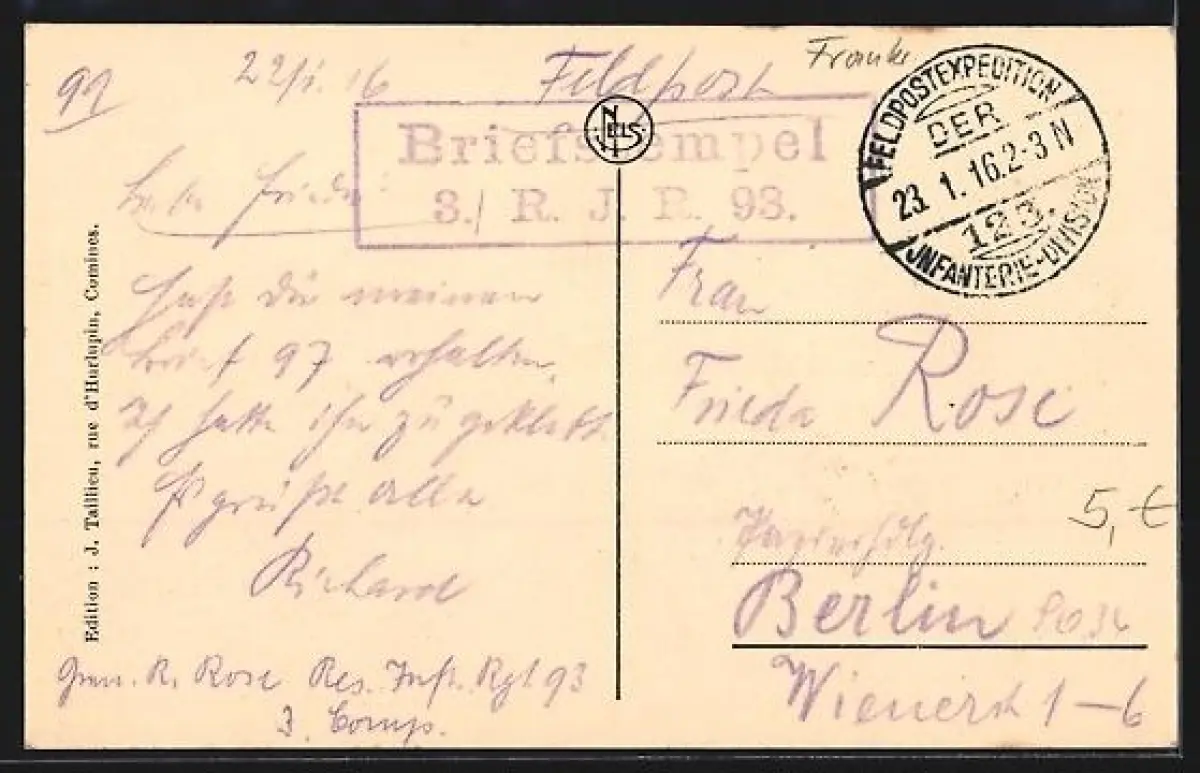 91
22/1.16
Feldpost
Franke
Briefstempel
3./ R. J. R. 93.
NELS
FELDPOSTEXPEDITION
DER
23. 1. 16. 2-3 N
123.
INFANTERIE-DIVISION
Liebe Frieda!
Hast du meinen
Brief 97 erhalten,
ich hatte ihn zugeklebt.
Es grüßt alle
Richard
R. Rose Res. Inft. Rgt 93
3. Comp.
Frau
Frieda Rose
Berlin SO 36
Wienerst 1-6
5,- €
Edition : J. Taillieu, rue d'Hurlupin, Comines.